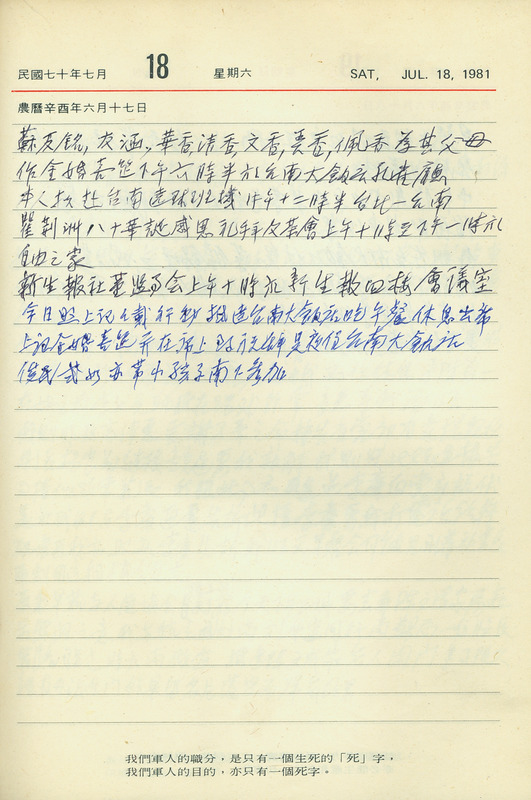 民國七十年七月 18 星期六 SAT, JUL. 18, 1981
農曆辛酉年六月十七日
蘇友銘,友涵,華香,清香,文香,美香,佩香為其父母
作金婚喜筵下午六時半於台南大飯店孔雀廳
本人擬赴台南遠班機下午十二時半台北—台南
瞿荊洲八十華誕感恩禮拜及茶會上午十時至下午一時於
自由之家
新生報社董監事會上午十時於新生報四樓會議室
今日照上記所載行抵達台南大飯店吃午餐休息出席
上記金婚喜筵並在席上致祝辭是夜住台南大飯店
亦帶小孩子南下參加
我們軍人的職分,是只有一個生死的「死」字,
我們軍人的目的,亦只有一個死字。